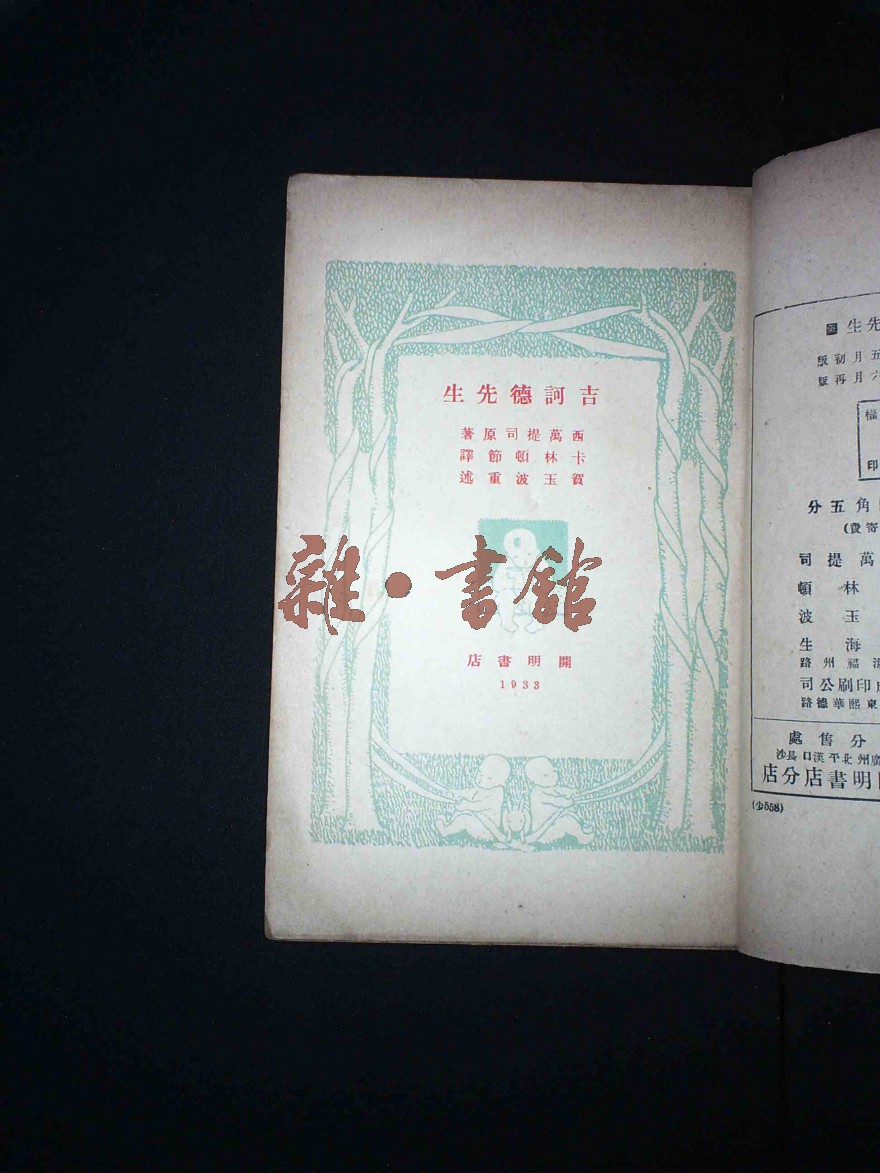 吉訶德先生
西萬提司原著
卡林頓節譯
賀玉波重述
雜·書館
開明書店
1933
先生
五月初版
六月再版
權
印
角五分
寄費)
萬提司
林頓
玉波
海生
福州路
印刷公司
東熙華德路
分售處
廣州北平漢口長沙
明書店分店
(少558)